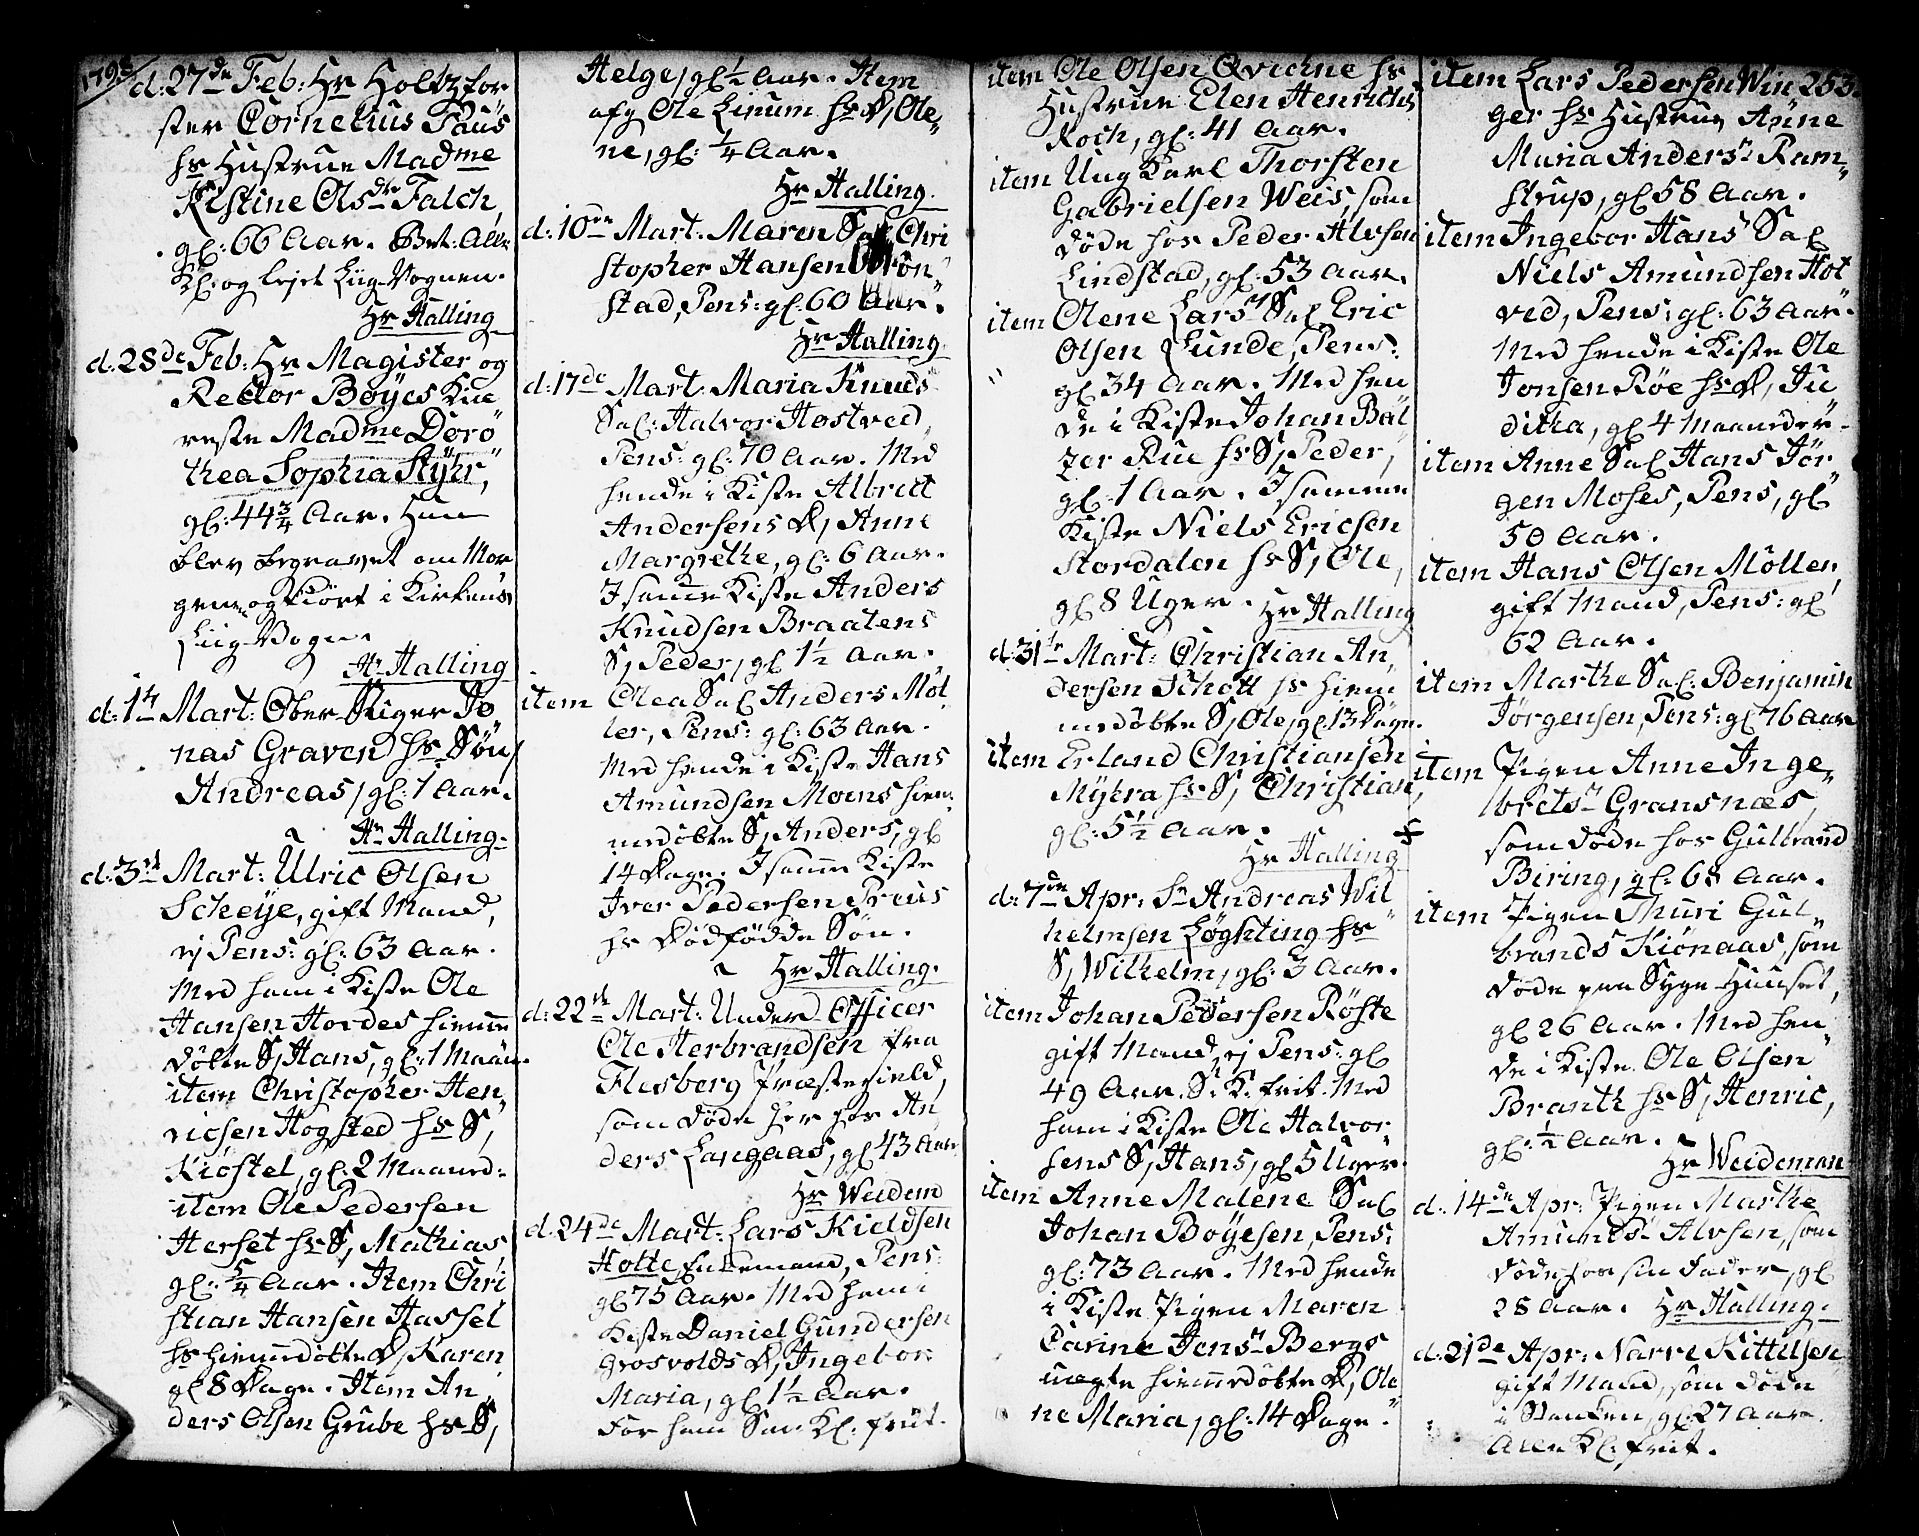 d: 27de Feb: Hr Holtzfor
ster Cornelius Paus
hs Hustrue Madme
Kistine Olsdtr Falch,
gl: 66 Aar. Bet: Alle
Kl: og lejet Liig-Vognen.
Hr Halling
d: 28de Feb: Hr Magister og
Rector Bøyes Kiæ
reste Madme Doro
thea Sophia Stÿhr,
gl: 44¾ Aar. Hun
blev begravet om Mor
genen og kiørt i Kirkens
Liig-Vogn.
Hr Halling
d: 1ste Mart: Ober Stiger Jo
nas Graven hs Søn,
Andreas, gl: 1 Aar.
Hr Halling.
d: 3die Mart: Ulric Olsen
Scheÿe, gift Mand,
ej Pens: gl: 63 Aar.
Med ham i Kiste Ole
Hansen Hordes hiemme
døbte S, Hans, gl: 1 Maan.
item Christopher Hen
ricsen Hogsted hs S,
Kiøstel, gl: 2 Maaned:
item Ole Pedersen
Herset hs S, Mathias,
gl: 5/4 Aar. Item Chri
stian Hansen Hassel
hs hiemmedøbte D, Karen
gl 8 Dage. Item An
ders Olsen Grube hs S,
Helge, gl ½ Aar. Item
afg Ole Linum hs D, Ole
ne, gl: ¼ Aar.
Hr Halling.
d: 10de Mart: Maren Sal Chri
stopher Hansen Grøn
stad, Pens: gl: 60 Aar.
Hr Halling.
d: 17de Mart: Maria Knuds
Sal: Halvor Hostved,
Pens: gl: 70 Aar. Med
hende i Kiste Albrett
Andersens D, Anne
Margrethe, gl: 6 Aar.
I samme Kiste Anders
Knudsen Braatens
S, Peder, gl 1½ Aar.
item Olea Sal Anders Møl
ler, Pens: gl: 63 Aar.
Med hende i Kiste Hans
Amundsen Moens hiem
medøbte S, Anders, gl
14 Dage. I samme Kiste
Iver Pedersen Preus
hs dødfødde Søn.
Hr Halling.
d: 22de Mart: Under Officer
Ole Herbrandsen fra
Flesberg Præstegield,
som døde her hos An
ders Langaas, gl 43 Aar.
Hr Weidem
d: 24de Mart: Lars Kieldsen
Holte Enkemand, Pens:
gl 75 Aar. Med ham i
Kiste Daniel Gundersen
Grosvolds D, Ingebor
Maria, gl 1½ Aar.
For ham Sm: Kl: frit.
item Ole Olsen Qvichne hs
Hustrue Elen Henrichs
Koch, gl: 41 Aar.
item Ung Karl Thorsten
Gabrielsen Weis, som
døde hos Peder Alvsen
Lindstad, gl: 53 Aar.
item Olene Larsdr Sal Eric
Olsen Lunde, Pens:
gl 34 Aar. Med hen
de i Kiste Johan Bal
tzer Rue hs S, Peder,
gl: 1 Aar. I samme
Kiste Niels Ericsen
Stordalen hs S, Ole,
gl 8 Uger. Hr Halling
d: 31te Mart: Christian An
dersen Schott hs hiem
medøbte S, Ole, gl 13 Dage.
item Erland Christiansen
Mÿhra hs S, Christian,
gl: 5½ Aar.
Hr Halling
d: 7de Apr: Sr Andreas Wil
helmsen Løghting hs
S, Wilhelm, gl: 3 Aar.
item Johan Pedersen Røste
gift Mand, ej Pens: gl
49 Aar. S: K: frit. Med
ham i Kiste Ole Halvor
sens S, Hans, gl 5 Uger.
item Anne Malene Sal
Johan Bøÿesen, Pens:
gl: 73 Aar. Med hende
i Kiste Pigen Maren
Carine Jensdr Bergs
uægte hiemmedøbte D, Ole
ne Maria, gl: 14 Dage.
item Lars Pedersen Win 253.
ger hs Hustrue Anne
Maria Andersdr Ram
strup, gl 58 Aar.
item Ingebor Hans Sal
Niels Amundsen Hot
ved, Pens: gl: 63 Aar.
Med hende i Kiste Ole
Jonsen Røe hs D, Ju
ditha, gl 4 Maaneder.
item Anne Sal Hans Jør
gen Moses, Pens, gl
50 Aar.
item Hans Olsen Møller,
gift Mand, Pens: gl
62 Aar.
item Marthe Sal: Benjamin
Jørgensen, Pens: gl 76 Aar
item Pigen Anne Inge
bretsdr Gransnæs,
som døde hos Gulbrand
Biring, gl: 68 Aar.
item Pigen Thuri Gul
brands Kiønaas, som
døde paa Syge-Huuset,
gl 26 Aar. Med hen
de i Kiste Ole Olsen
Branth hs S, Henric,
gl: ½ Aar.
Hr Weideman
d: 14de Apr: Pigen Marthe
Amunds Alvsen, som
døde hos sin Fader, gl
28 Aar. Hr Halling.
d: 21de Apr: Narve Kittelsen
gift Mand, som døde
gl: 27 Aar
Alle Kl: frit.